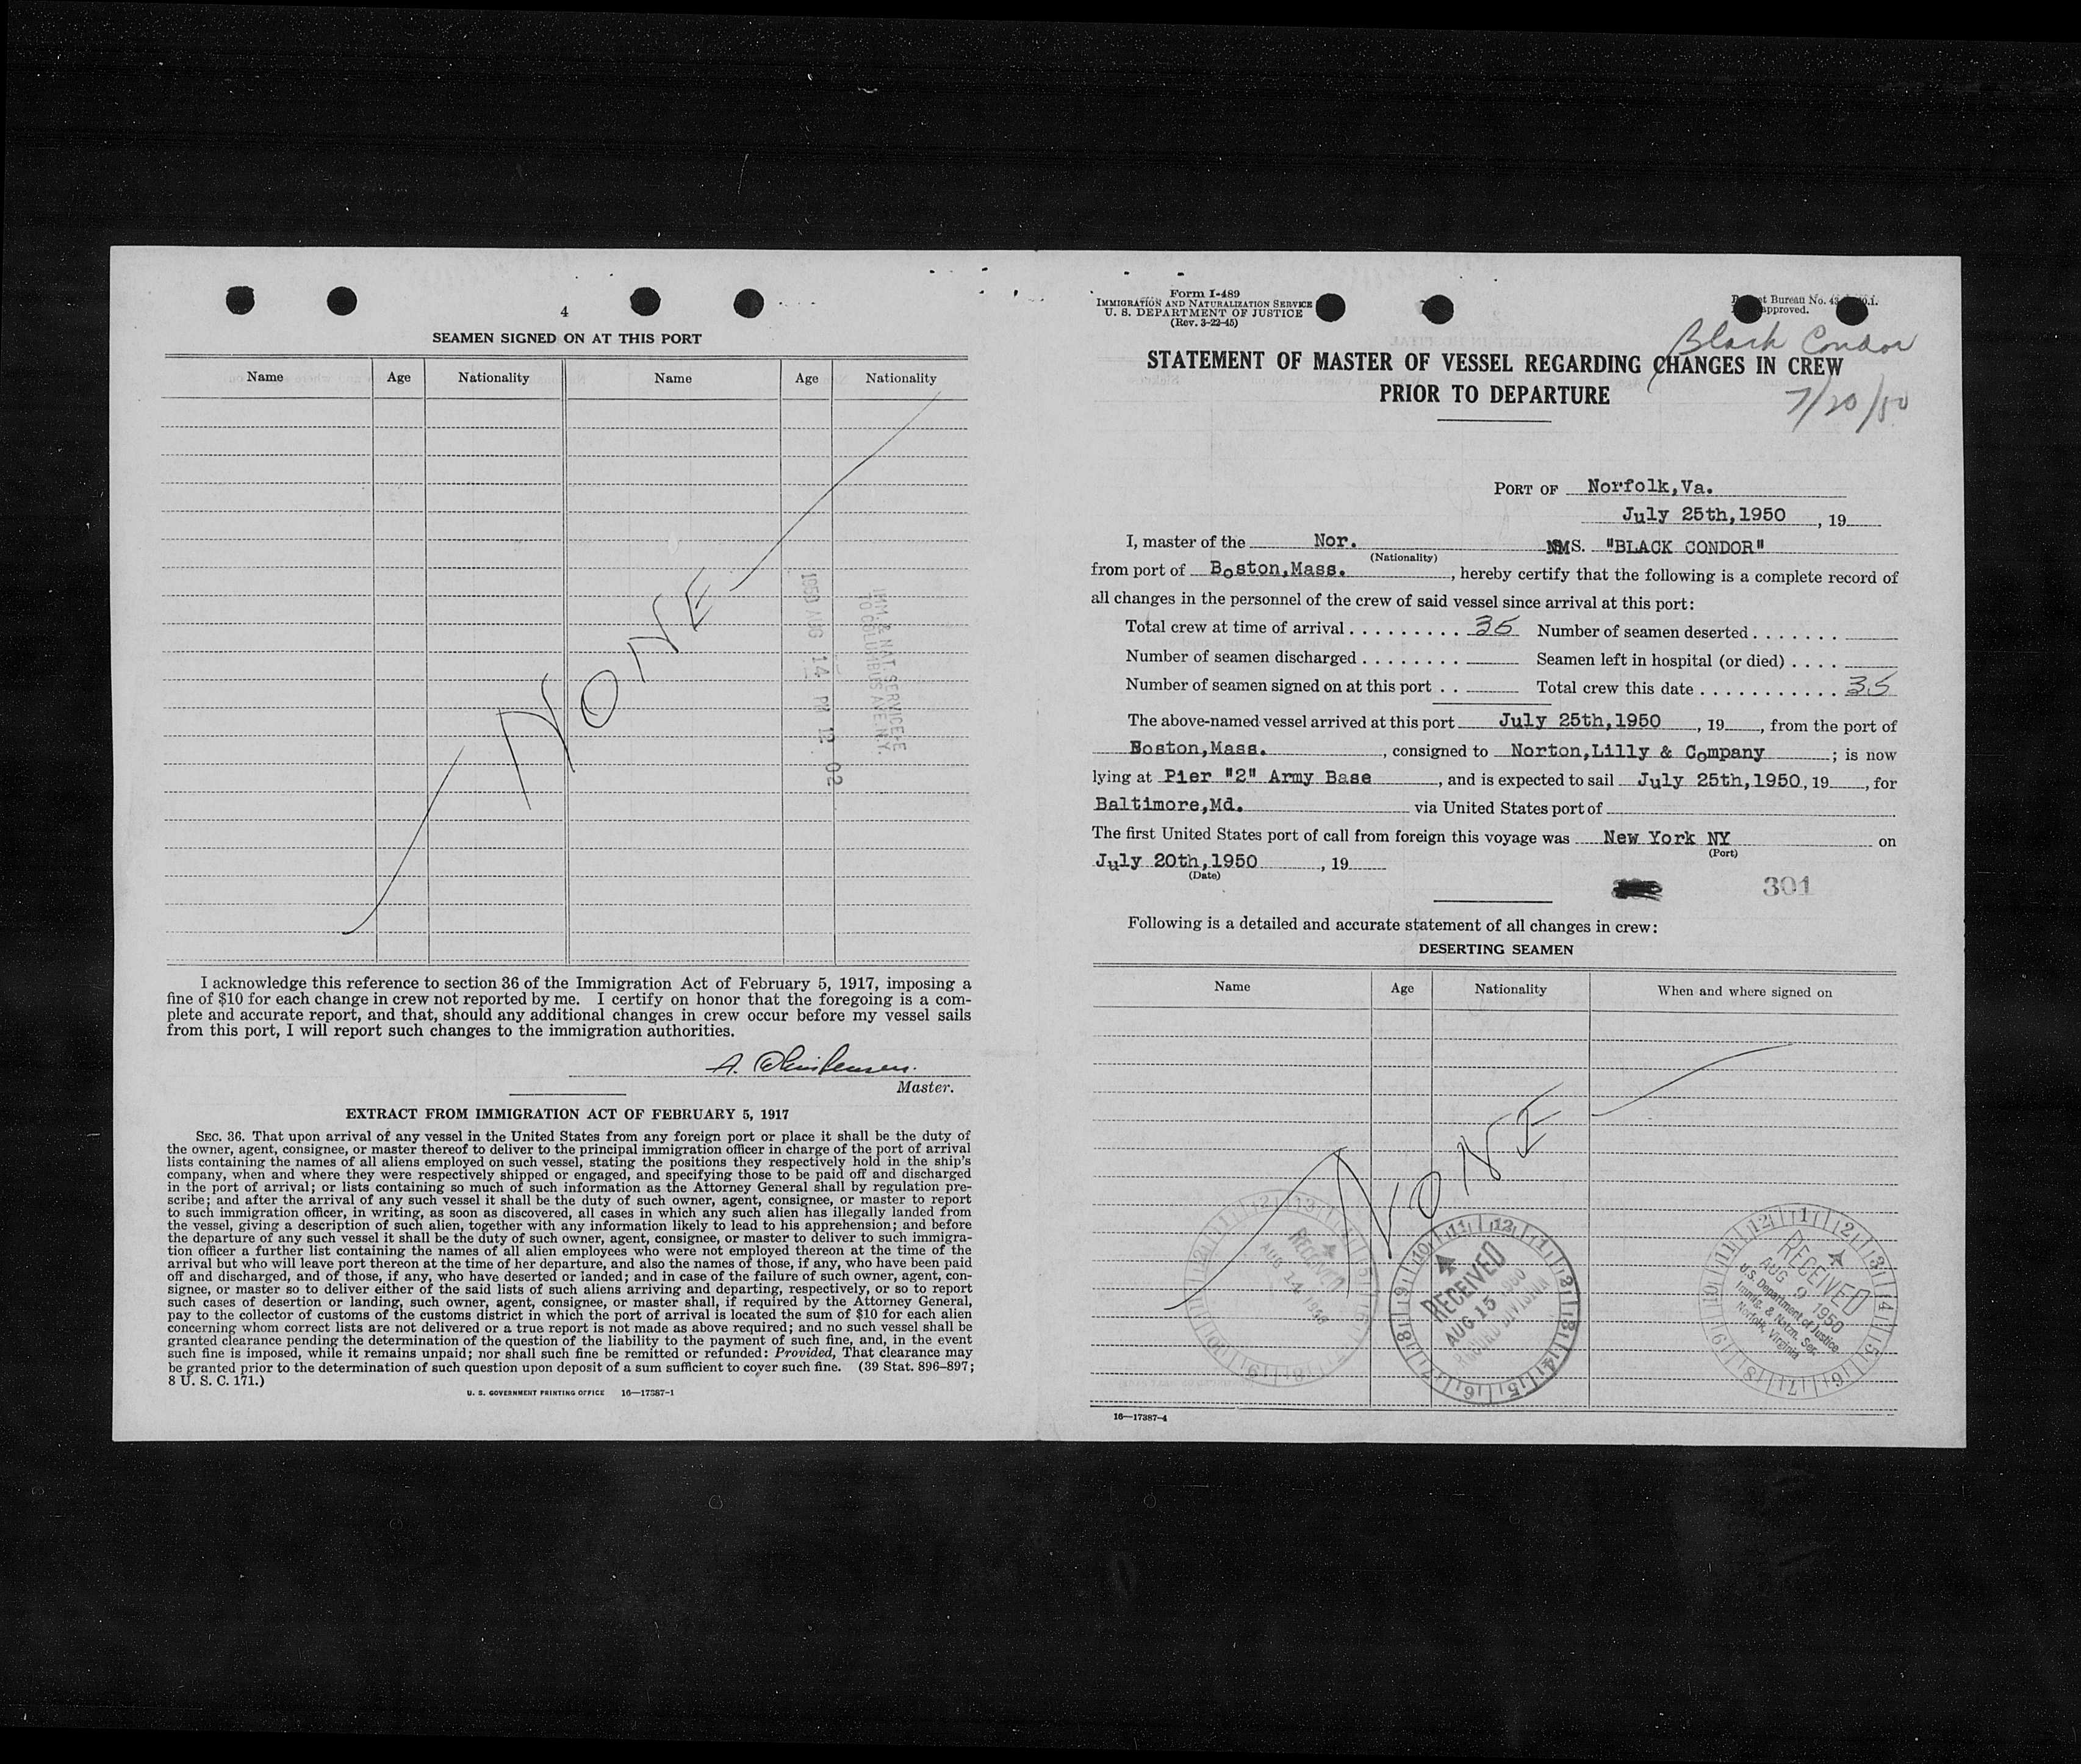 4
SEAMEN SIGNED ON AT THIS PORT
Name Age Nationality Name Age Nationality
NONE
1950 AUG 14 PM 12 02
IMM. & NAT. SERVICE
70 COLUMBUS AVE N.Y.
I acknowledge this reference to section 36 of the Immigration Act of February 5, 1917, imposing a
fine of $10 for each change in crew not reported by me. I certify on honor that the foregoing is a com-
plete and accurate report, and that, should any additional changes in crew occur before my vessel sails
from this port, I will report such changes to the immigration authorities.
A. Christensen.
Master.
EXTRACT FROM IMMIGRATION ACT OF FEBRUARY 5, 1917
SEC. 36. That upon arrival of any vessel in the United States from any foreign port or place it shall be the duty of
the owner, agent, consignee, or master thereof to deliver to the principal immigration officer in charge of the port of arrival
lists containing the names of all aliens employed on such vessel, stating the positions they respectively hold in the ship's
company, when and where they were respectively shipped or engaged, and specifying those to be paid off and discharged
in the port of arrival; or lists containing so much of such information as the Attorney General shall by regulation pre-
scribe; and after the arrival of any such vessel it shall be the duty of such owner, agent, consignee, or master to report
to such immigration officer, in writing, as soon as discovered, all cases in which any such alien has illegally landed from
the vessel, giving a description of such alien, together with any information likely to lead to his apprehension; and before
the departure of any such vessel it shall be the duty of such owner, agent, consignee, or master to deliver to such immigra-
tion officer a further list containing the names of all alien employees who were not employed thereon at the time of the
arrival but who will leave port thereon at the time of her departure, and also the names of those, if any, who have been paid
off and discharged, and of those, if any, who have deserted or landed; and in case of the failure of such owner, agent, con-
signee, or master so to deliver either of the said lists of such aliens arriving and departing, respectively, or so to report
such cases of desertion or landing, such owner, agent, consignee, or master shall, if required by the Attorney General,
pay to the collector of customs of the customs district in which the port of arrival is located the sum of $10 for each alien
concerning whom correct lists are not delivered or a true report is not made as above required; and no such vessel shall be
granted clearance pending the determination of the question of the liability to the payment of such fine, and, in the event
such fine is imposed, while it remains unpaid; nor shall such fine be remitted or refunded: Provided, That clearance may
be granted prior to the determination of such question upon deposit of a sum sufficient to cover such fine. (39 Stat. 896-897;
8 U. S. C. 171.)
U. S. GOVERNMENT PRINTING OFFICE 16—17387-1
Form I-489
IMMIGRATION AND NATURALIZATION SERVICE
U. S. DEPARTMENT OF JUSTICE
(Rev. 3-22-45)
Bureau No.
approved.
Black Condor
7/20/50
STATEMENT OF MASTER OF VESSEL REGARDING CHANGES IN CREW
PRIOR TO DEPARTURE
PORT OF Norfolk,Va.
July 25th,1950 , 19
I, master of the Nor. MS. "BLACK CONDOR"
(Nationality)
from port of Boston,Mass. , hereby certify that the following is a complete record of
all changes in the personnel of the crew of said vessel since arrival at this port:
Total crew at time of arrival . . . . . . . . . 35 Number of seamen deserted . . . . . . .
Number of seamen discharged . . . . . . . . Seamen left in hospital (or died) . . . .
Number of seamen signed on at this port . . Total crew this date . . . . . . . . . . . 35
The above-named vessel arrived at this port July 25th,1950 , 19 , from the port of
Boston,Mass. , consigned to Norton,Lilly & Company ; is now
lying at Pier "2" Army Base , and is expected to sail July 25th,1950, 19 , for
Baltimore,Md. via United States port of
The first United States port of call from foreign this voyage was New York NY on
(Port)
July 20th,1950 , 19
(Date)
301
Following is a detailed and accurate statement of all changes in crew:
DESERTING SEAMEN
Name Age Nationality When and where signed on
NONE
RECEIVED
AUG 14
RECEIVED
AUG 15 1950
RECORD DIVISION
RECEIVED
AUG 9 1950
U.S. Department of Justice
Immig. & Natzn. Ser.
Norfolk, Virginia
16—17387-4